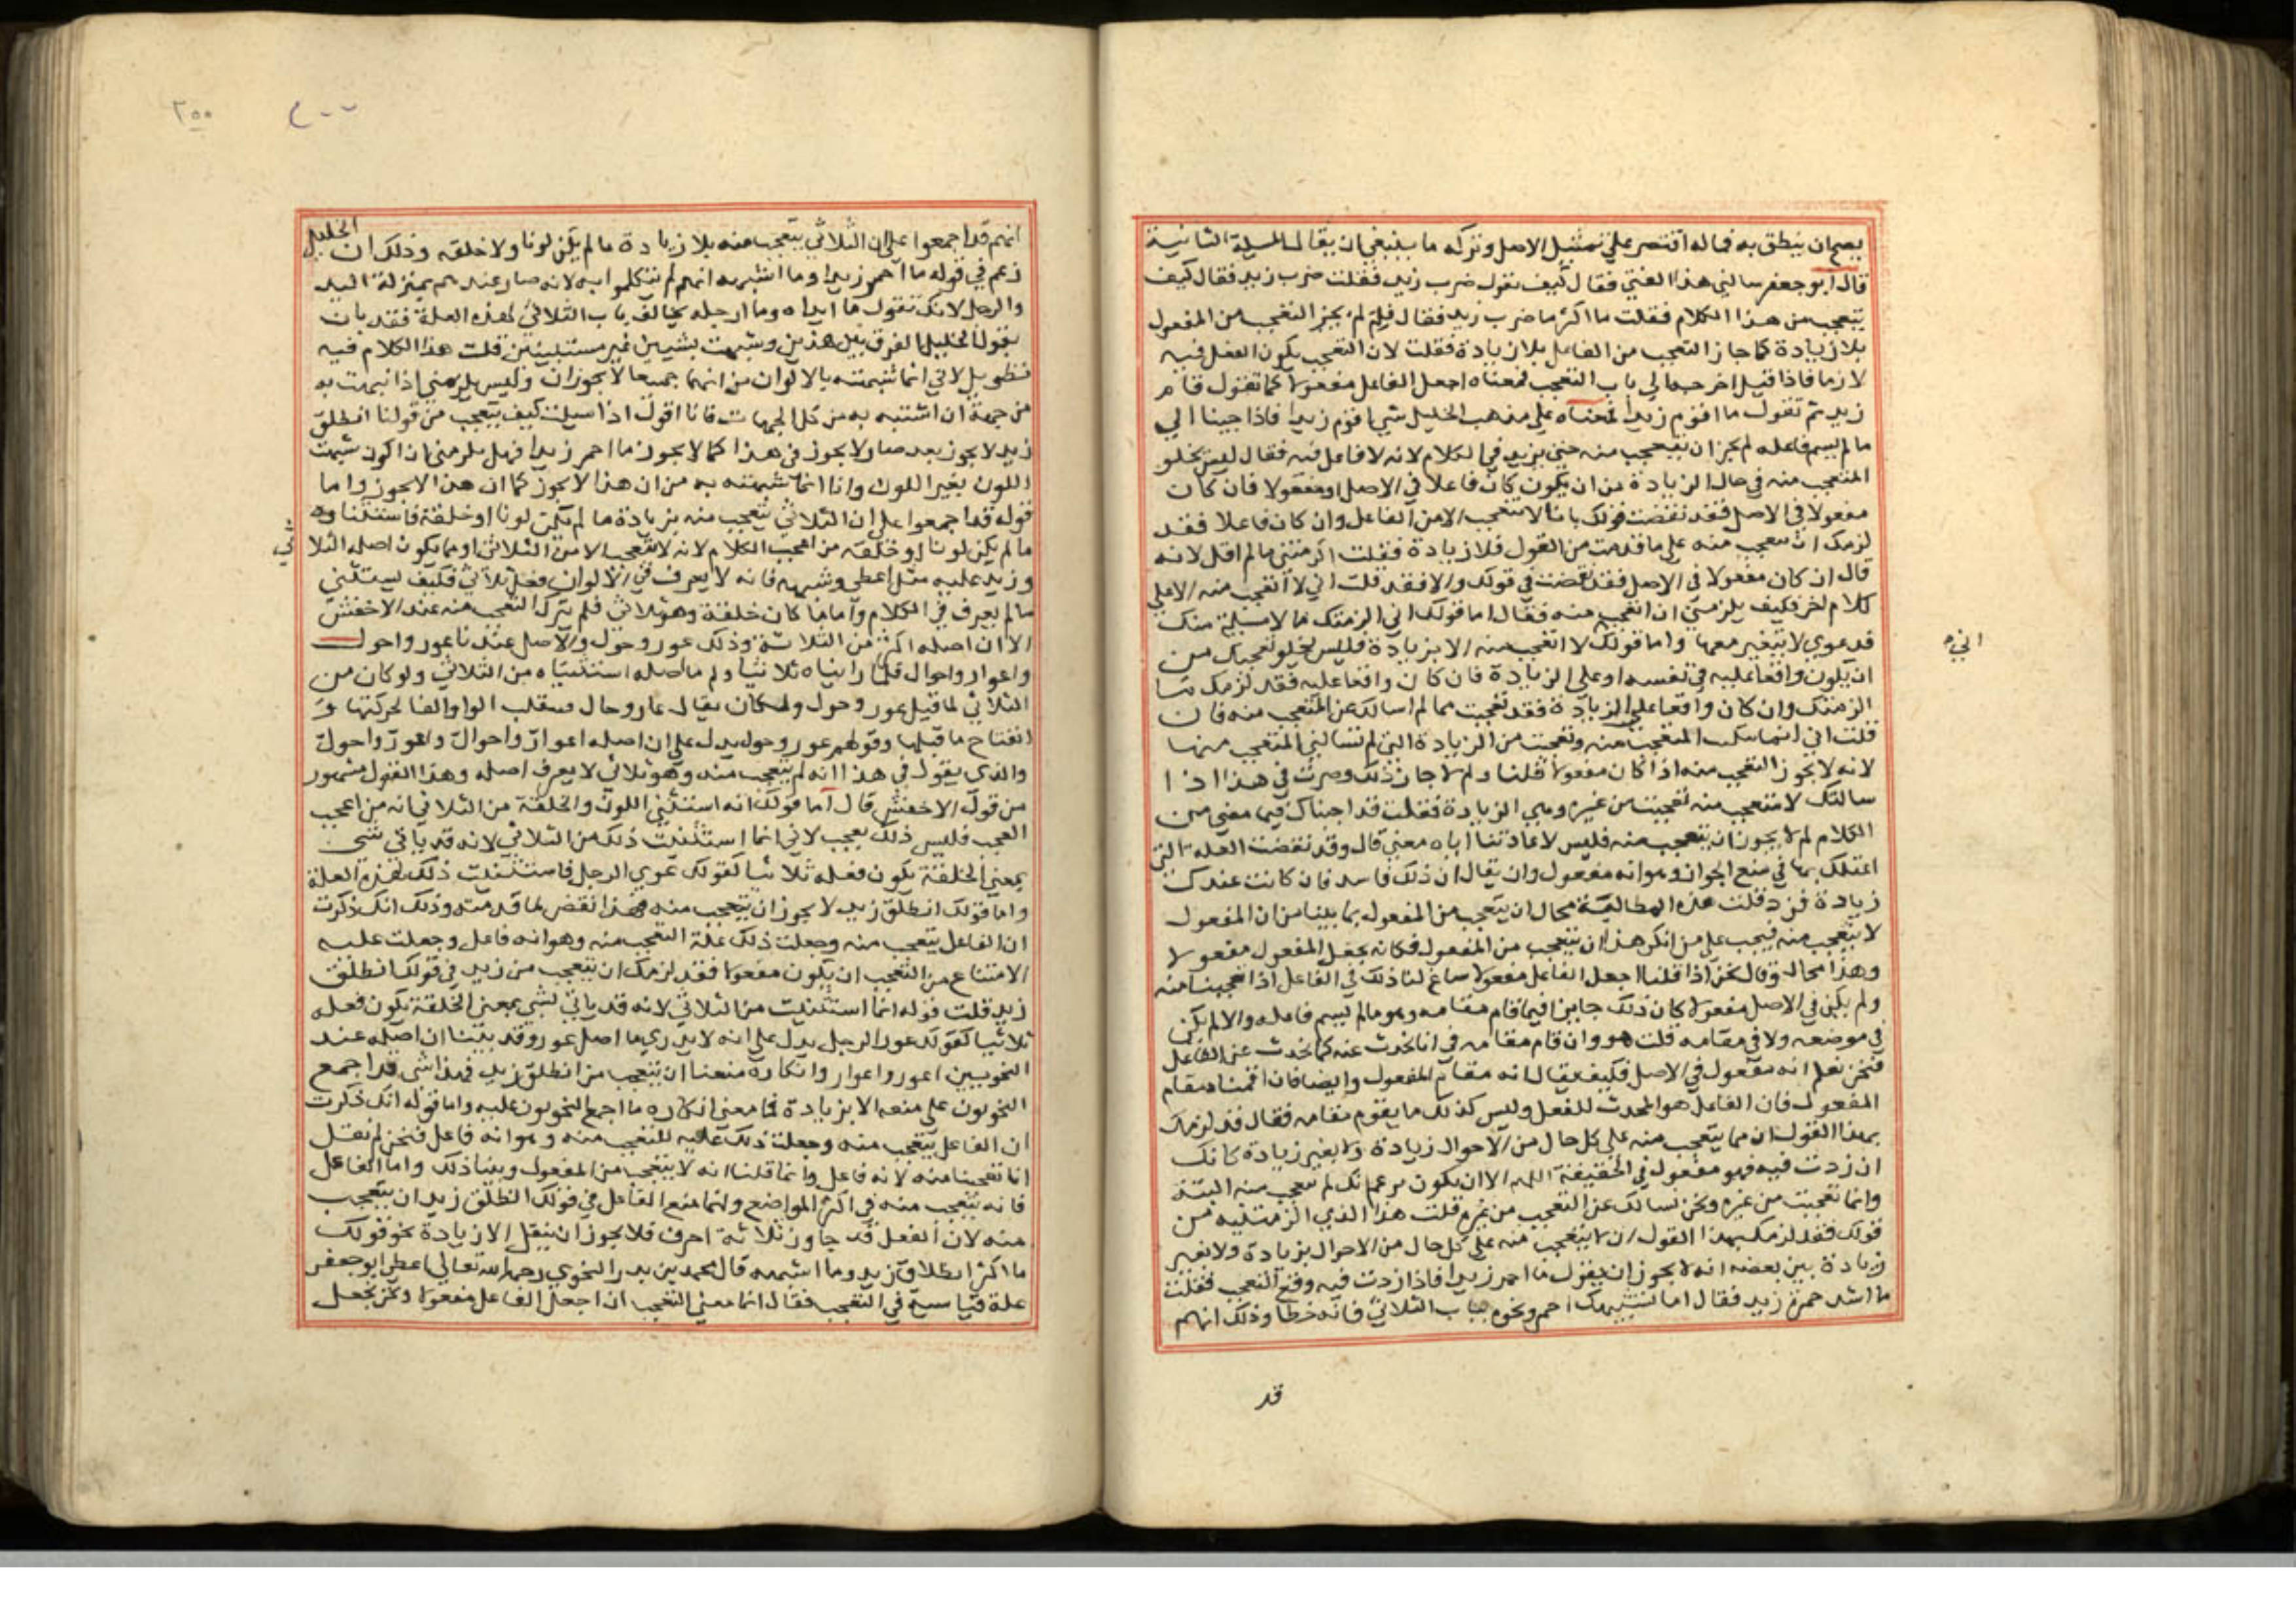 يصح ان ينطق به فما له اقتصر على تمثيل الاصل وتركه ما ينبغي ان يقال المسيلة الثانية
قال ابو جعفر سالني هذا الفتي فقال كيف تقول ضرب زيد فقلت ضرب زيد فقال كيف
يتعجب من هذا الكلام فقلت ما اكثر ما ضرب زيد فقال فلم لم يجز التعجب من المفعول
بلا زيادة كما جاز التعجب من الفاعل بلا زيادة فقلت لان التعجب يكون الفعل فيه
لازما فاذا قيل اخرجه الي باب التعجب فمعناه اجعل الفاعل مفعولا كما تقول قام
زيد ثم تقول ما اقوم زيدا فمعناه علي مذهب الخليل شي اقوم زيدا فاذا جينا الي
ما لم يسم فاعله لم يجز ان يتعجب منه حتي يزيد في الكلام لانه لا فاعل فيه فقال ليس يخلو
المتعجب منه في حال الزيادة من ان يكون كان فاعلا في الاصل او مفعولا فان كان
مفعولا في الاصل فقد نقضت قولك بانا لا نتعجب الا من الفاعل وان كان فاعلا فقد
لزمك ان تتعجب منه علي ما قدمت من القول فلا زيادة فقلت الزمتني ما لم اقل لانه
قال ان كان مفعولا في الاصل فقد نقضت في قولك والا فقد قلت اني لا اتعجب منه الا علي
كلام اخر فكيف يلزمني ان اتعجب منه فقال اما قولك اني الزمتك ما لا مسيلة منك
فدعوي لا يتغير معها واما قولك لا اتعجب منه الا بزيادة فليس يخلو تعجبك من
ان يكون واقعا عليه في نفسه او علي الزيادة فان كان واقعا عليه فقد لزمك ما
الزمتك وان كان واقعا علي الزيادة فقد تعجبت مما لم اسالك عن المتعجب منه فان
قلت اني انما المتعجب منه وتعجبت من الزيادة التي لم تسالني المتعجب منها
لانه لا يجوز التعجب منه اذا كان مفعولا قلنا ولم لا جاز ذلك وصرت في هذا اذا
سالتك لا متعجب منه تعجبت من غيره وهي الزيادة فقلت قد اجبناك فيما مضي من
الكلام لم لا يجوز ان يتعجب منه فليس لاعادتنا اياه معني قال وقد نقضت العلة التي
اعتللك بها في منع الجواز وهو انه مفعول وان يقال ان ذلك فاسد فان كانت عندك
زيادة فزد قلت هذه المطالبة محال ان يتعجب من المفعول بما بينا من ان المفعول
لا يتعجب منه فيجب علي من انكر هذا ان يتعجب من المفعول فكانه يجعل المفعول مفعولا
وهذا محال وقال نحن اذا قلنا اجعل الفاعل مفعولا ساغ لنا ذلك في الفاعل اذا تعجبنا منه
ولم يكن في الاصل مفعولا كان ذلك جايزا فيما قام مقامه وهو ما لم يسم فاعله والا لم يكن
في موضعه ولا في مقامه قلت هو وان قام مقامه في انا نحدث عنه كما نحدث عن الفاعل
فنحن نعلم انه مفعول في الاصل فكيف يقال انه مقام المفعول وايضا فان اقمناه مقام
المفعول فان الفاعل هو المحدث للفعل وليس كذلك ما يقوم مقامه فقال قد لزمك
بهذا القول ان مما يتعجب منه علي كل حال من الاحوال زيادة ولا بغير زيادة كانك
ان زدت فيه فهو مفعول في الحقيقة اللهم الا ان يكون برعم انك لم تتعجب منه البتة
وانما تعجبت من غيره ونحن نسالك عن التعجب من غيره قلت هذا الذي الزمتنيه من
قولك فقد لزمك بهذا القول ان لا يتعجب منه علي كل حال من الاحوال بزيادة ولا بغير
زيادة بين بعضه انه لا يجوز ان يقول ما احمر زيدا فاذا زدت فيه وقع التعجب فقلت
ما اشد حمرة زيد فقال اما تشبيهك احمر ونحوه بباب الثلاثي فانه خطا وذلك انهم
اني
قد
٢٠٠
انهم قد اجمعوا علي ان الثلاثي يتعجب منه بلا زيادة ما لم يكن لونا ولا خلقه وذلك ان الخليل
زعم في قوله ما احمر زيدا وما اشبهه انهم لم يتكلموا به لانه صار عندهم بمنزلة اليد
والرجل لانك تقول ما ايداه وما ارجله يخالف باب الثلاثي لهذه العلة فقد بان
بقول الخليل الفرق بين هذين وشبهت بشيين غير مستبينين قلت هذا الكلام فيه
تطويل لاني انما شبهته بالالوان من انهما جميعا لا يجوزان وليس يلزمني اذا شبهت به
من جهة ان اشتبه به من كل الجهات فانا اقول اذا سيلت كيف يتعجب من قولنا انطلق
زيد لا يجوز بعد صار ولا يجوز في هذا كما لا يجوز ما احمر زيدا فهل يلزمني ان اكون شبهت
اللون بغير اللون وانا انما شبهته به من ان هذا لا يجوز كما ان هذا لا يجوز واما
قوله قد اجمعوا علي ان الثلاثي يتعجب منه بزيادة ما لم يكن لونا او خلقة فاستثناوه
ما لم يكن لونا او خلقه من اعجب الكلام لانه لا يتعجب الا من الثلاثي او مما يكون اصله الثلا
ثي
وزيد عليه مثل اعطي وشبهه فانه لا يعرف في الالوان فعل ثلاثي فكيف يستثني
ما لم يعرف في الكلام واما ما كان خلقة وهو ثلاثي فلم يترك التعجب منه عند الاخفش
الا ان اصله اكثر من الثلاثة وذلك عور وحول والاصل عندنا عور واحول
واعوار واحوال فلما رايناه ثلاثيا ولم ما اصله استثنيناه من الثلاثي ولو كان من
الثلاثي لما قيل عور وحول ولكان يقال عار وحال فتقلب الواو الفا لحركتها و
انفتاح ما قبلها وقولهم عور وحول يدل علي ان اصله اعوار واحوال واعور واحول
والذي يقول في هذا انه لم يتعجب منه وهو ثلاثي لا يعرف اصله وهذا القول مشهور
من قول الاخفش قال اما قولك انه استثني اللون والخلقة من الثلاثي انه من اعجب
العجب فليس ذلك بعجب لاني انما استثنيت ذلك من الثلاثي لانه قد ياتي شي
بمعني الخلقة يكون فعله ثلاثيا كقولك عوي الرجل فاستثنيت ذلك بهذه العلة
واما قولك انطلق زيد لا يجوز ان يتعجب منه فهذا نقض لما قدمته وذلك انك ذكرت
ان الفاعل يتعجب منه وجعلت ذلك علة التعجب منه وهو انه فاعل وجعلت عليه
الامتناع من التعجب ان يكون مفعولا فقد لزمك ان تتعجب من زيد في قولك انطلق
زيد قلت قوله انما استثنيت من الثلاثي لانه قد ياتي بشي بمعني الخلقة يكون فعله
ثلاثيا كقولك عور الرجل يدل علي انه لا يدري ما اصل عور وقد بينا ان اصله عند
النحويين اعور واعوار وانكاره منعنا ان يتعجب من انطلق زيد فهذا شي قد اجمع
النحويون علي منعه الا بزيادة فما معني انكاره ما اجمع النحويون عليه واما قوله انك ذكرت
ان الفاعل يتعجب منه وجعلت ذلك علة للتعجب منه وهو انه فاعل فنحن لم نقل
انا تعجبنا منه لانه فاعل وانما قلنا انه لا يتعجب من المفعول وبينا ذلك واما الفاعل
فانه يتعجب منه في اكثر المواضع وانما منع الفاعل في قولك انطلق زيد ان يتعجب
منه لان الفعل قد جاوز ثلاثة احرف فلا يجوز ان ينقل الا زيادة نحو قولك
ما اكثر انطلاق زيد وما اشبهه قال محمد بن بدر النحوي رحمه الله تعالي اعطي ابو جعفر
علة قياسية في التعجب فقال انما معني التعجب ان اجعل الفاعل مفعولا ونحن نجعل